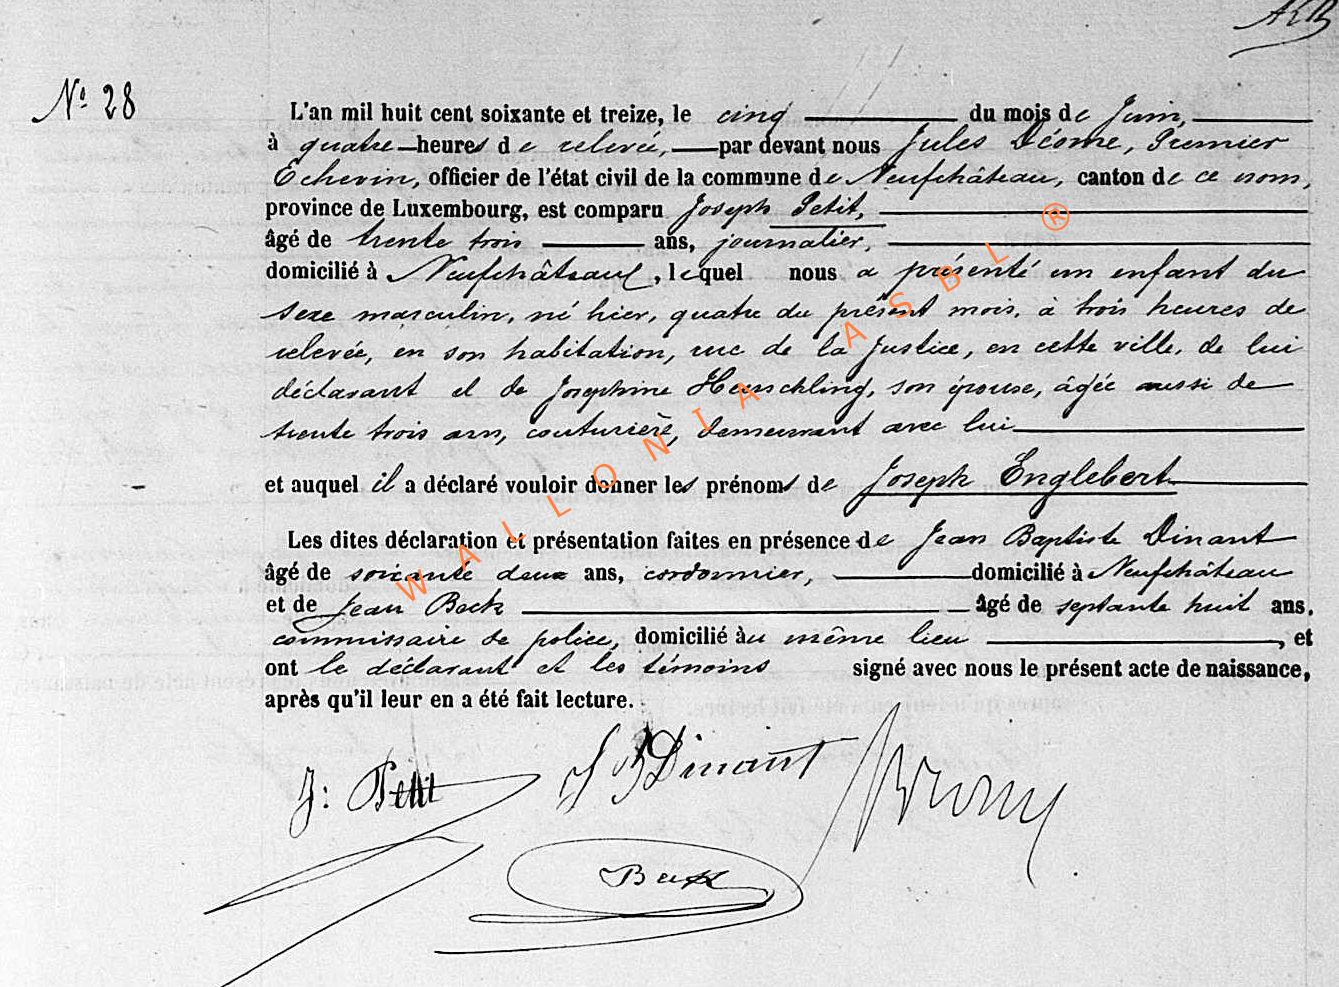 Nº 28
L'an mil huit cent soixante et treize, le cinq du mois de Juin,
à quatre heures de relevée, par devant nous Jules Déome, Premier
Echevin, officier de l'état civil de la commune de Neufchâteau, canton de ce nom,
province de Luxembourg, est comparu Joseph Petit,
âgé de trente trois ans, journalier,
domicilié à Neufchâteau, lequel nous a présenté un enfant du
sexe masculin, né hier, quatre du présent mois, à trois heures de
relevée, en son habitation, rue de la Justice, en cette ville, de lui
déclarant et de Josephine Heuschling, son épouse, âgée aussi de
trente trois ans, couturière, demeurant avec lui
et auquel il a déclaré vouloir donner les prénoms de Joseph Englebert
Les dites déclaration et présentation faites en présence de Jean Baptiste Dinant
âgé de soixante deux ans, cordonnier, domicilié à Neufchâteau
et de Jean Beck âgé de septante huit ans,
commissaire de police, domicilié au même lieu, et
ont le déclarant et les témoins signé avec nous le présent acte de naissance,
après qu'il leur en a été fait lecture.
J: Petit
J B Dinant
Beck
WALLONIA ASBL ®